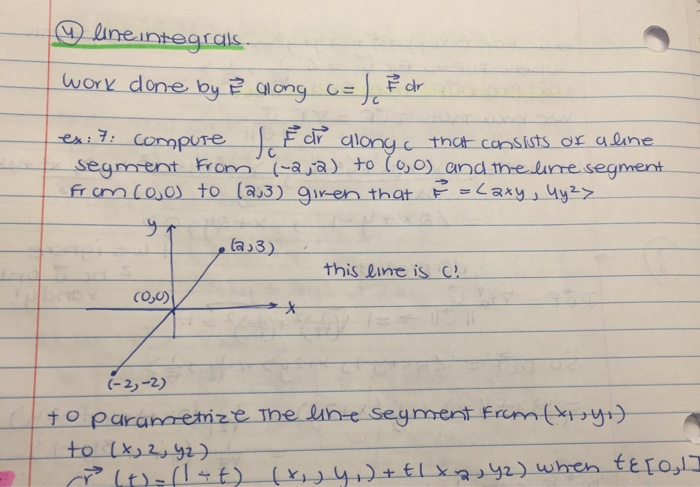 ④ line integrals.
work done by F⃗ along C = ∫_C F⃗ dr
ex: 7: compute ∫_C F⃗ dr⃗ along c that consists of a line
segment from (-2,-2) to (0,0) and the line segment
from (0,0) to (2,3) given that F⃗ = <2xy, 4y²>
y
(2,3)
this line is C!
(0,0)
x
(-2,-2)
to parametrize the line segment from (x₁,y₁)
to (x,2, y2)
r⃗(t)=(1-t) (x₁, y₁)+t(x2,y2) when tε[0,1]